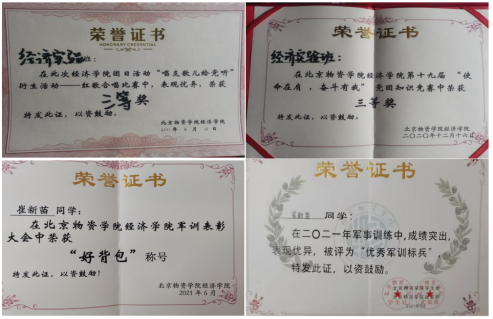 荣誉证书
HONORARY CREDENTIAL
经济实验班：
在此次经济学院团日活动“唱支歌儿给党听”
衍生活动——红歌合唱比赛中，表现优异，荣获
三等奖
特发此证，以资鼓励。
北京物资学院经济学院
荣誉证书
经济实验班：
在北京物资学院经济学院第十九届 “使
命在肩，奋斗有我”党团知识竞赛中荣获
三等奖
特发此证，以资鼓励。
北京物资学院经济学院
二〇二〇年十二月十六日
荣誉证书
崔新苗 同学：
在北京物资学院经济学院军训表彰
大会中荣获
“好背包” 称号
特发此证，以资鼓励！
北京物资学院经济学院
2021年6月
荣誉证书
同学：
在二〇二一年军事训练中，成绩突出，
表现优异，被评为“优秀军训标兵”，
特发此证，以资鼓励。